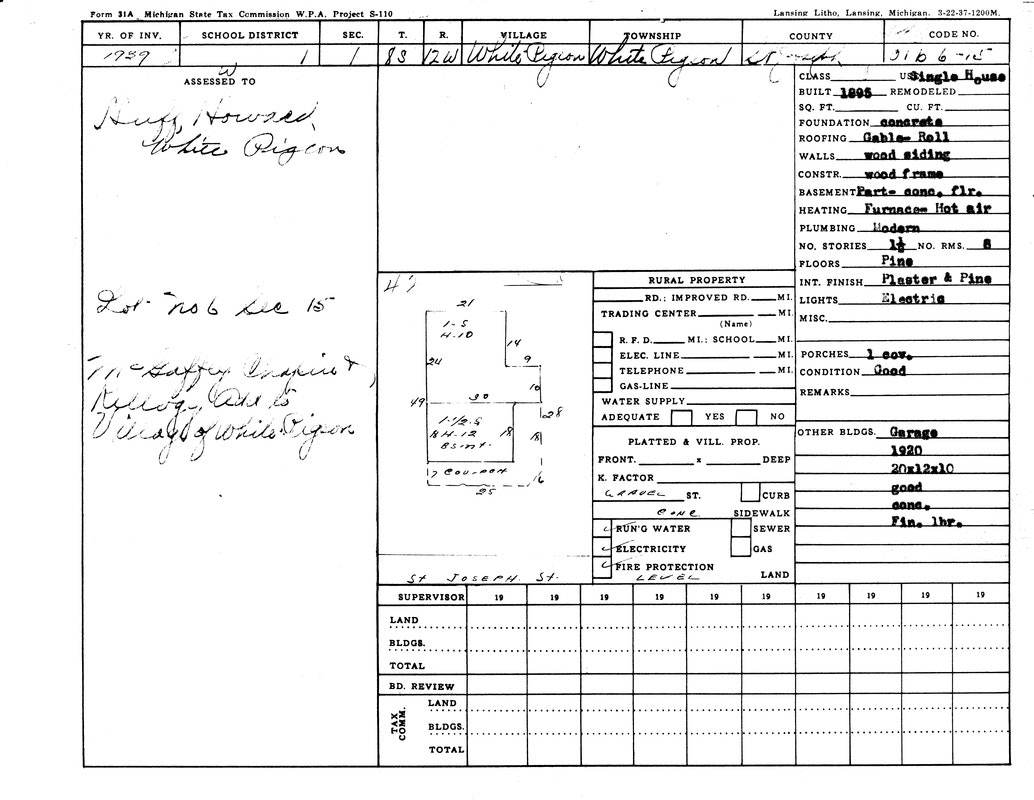 Form 31A Michigan State Tax Commission W.P.A. Project S-110 Lansing Litho, Lansing, Michigan. 3-22-37-1200M.
YR. OF INV. SCHOOL DISTRICT SEC. T. R. VILLAGE TOWNSHIP COUNTY CODE NO.
1939 1 1 8S 12W White Pigeon White Pigeon St Joseph 31b 6-15
ASSESSED TO
Huff, Howard,
White Pigeon
Lot No 6 Sec 15
McGaffey Chapin &
Kellogg Add to
Village of White Pigeon
CLASS US Single House
BUILT 1895 REMODELED
SQ. FT. CU. FT.
FOUNDATION concrete
ROOFING Gable- Roll
WALLS wood siding
CONSTR. wood frame
BASEMENT Part- conc. flr.
HEATING Furnace- Hot air
PLUMBING Modern
NO. STORIES 1½ NO. RMS. 8
FLOORS Pine
INT. FINISH Plaster & Pine
LIGHTS Electric
MISC.
PORCHES 1 cov.
CONDITION Good
REMARKS
OTHER BLDGS. Garage
1920
20x12x10
good
conc.
Fin. lbr.
47
21
1-S
H-10
14
24
9
10
30
49
28
1-1/2-S
H-12
BSMT.
18
18
7
16
25
St JOSEPH St.
RURAL PROPERTY
RD.; IMPROVED RD. MI.
TRADING CENTER MI.
(Name)
R. F. D. MI.; SCHOOL MI.
ELEC. LINE MI.
TELEPHONE MI.
GAS-LINE
WATER SUPPLY
ADEQUATE YES NO
PLATTED & VILL. PROP.
FRONT. x DEEP
K. FACTOR
GRAVEL ST. CURB
CONC SIDEWALK
RUN'G WATER SEWER
ELECTRICITY GAS
FIRE PROTECTION
LEVEL LAND
SUPERVISOR 19 19 19 19 19 19 19 19 19 19
LAND
BLDGS.
TOTAL
BD. REVIEW
TAX COMM.
LAND
BLDGS.
TOTAL